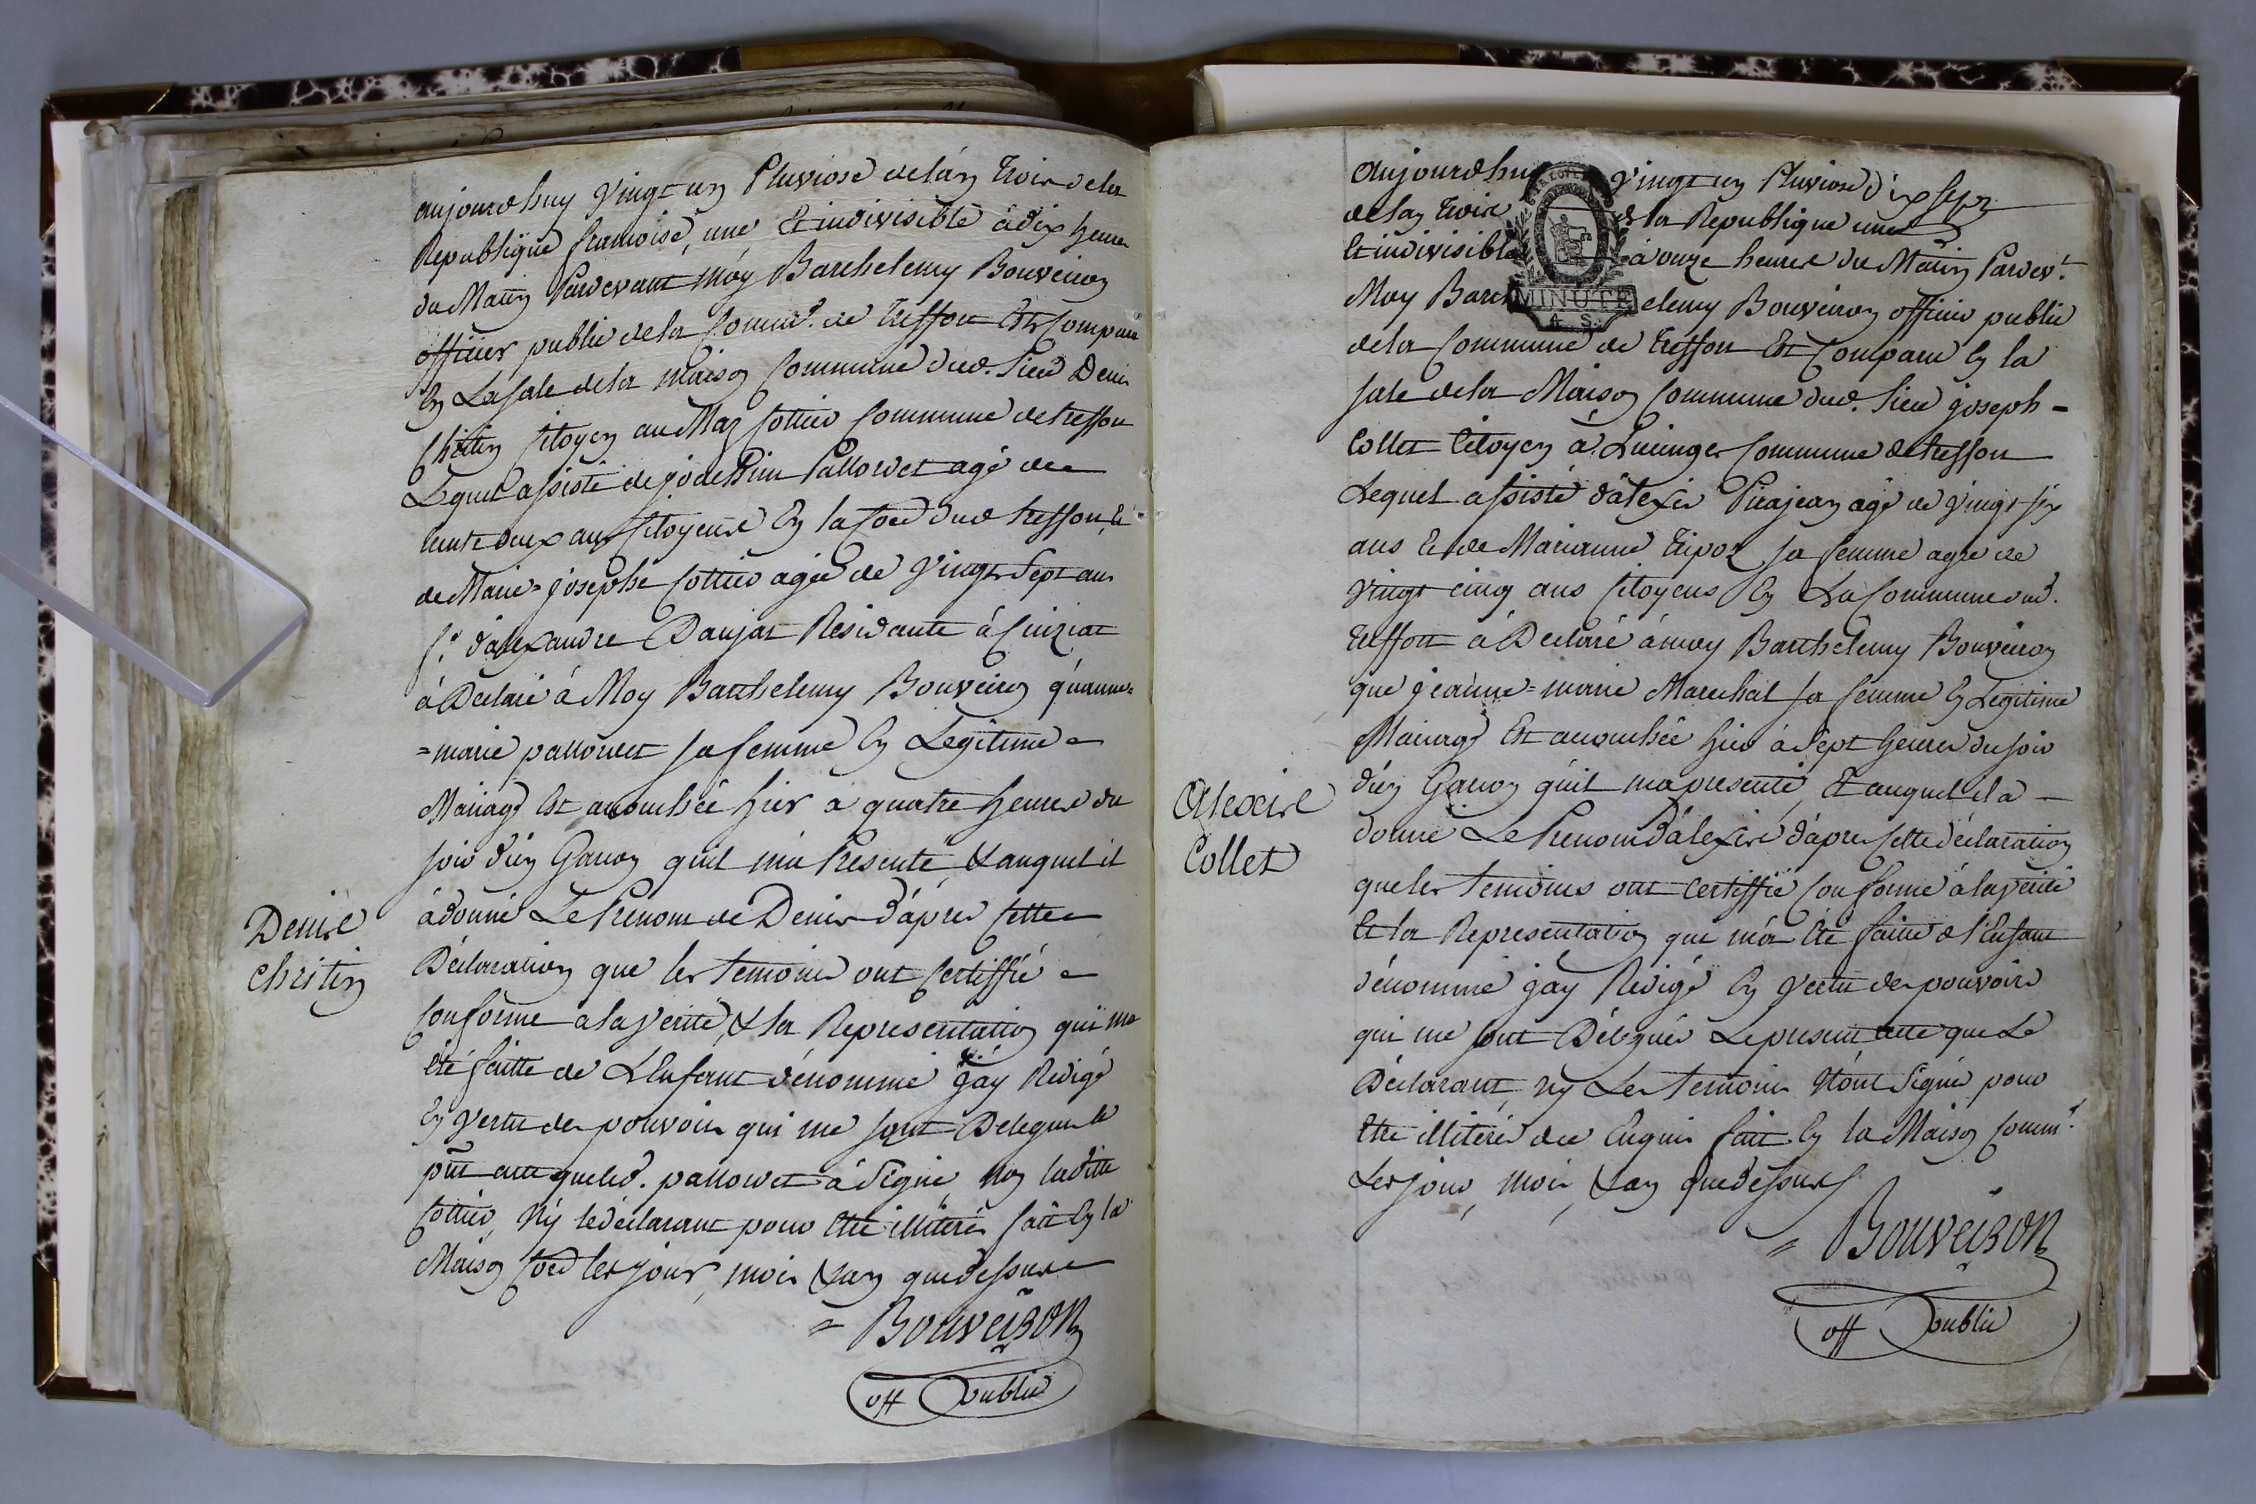 aujourdhuy vingt un Pluviose de lán trois de la
Republique francoise, une Et indivisible à dix heures
du Matin Pardevant Moy Barthelemy Bouveiron
officier public de la Commne. de treffort Est Comparu
En La sale de la Maison Commune dud. Lieu Denis
Christin Citoyen au Maz Cottier Commune de treffort
Lequel assisté de Pallordet agé de
trente deux ans Citoyens En la Coe dud treffort, Et
de Marie=josephe Cottier agée de vingt Sept ans
fe. d'alexandre Danjat Residante à Cuiziat
à Declaré à Moy Barthelemy Bouveiron qúanne=
=marie pallordet sa femme En Legitime
Mariage Est acouchée hier à quatre heures du
soir dún Garcon quil má Presenté & auquel il
à donné Le Prenom de Denis d'ápres Cette
Déclaration que les temoins ont Certiffié
Conforme a la verité, & la Representation qui ma
été faitte de LEnfant dénommé jáy Redigé
En vertu des pouvoirs qui me sont Delegués le
pnt acte que led. pallordet à Signé non laditte
Cottier, Ny le déclarant pour Etre illiterés fait En la
Maison Coe les jour, mois & an que dessus
Bouveiron
off public
Denis
christin
aujourdhuy vingt un Pluviose dix sept
de lan trois de la Republique une
Et indivisible à onze heures du Matin Pardevt.
Moy Barthelemy Bouveiron officier public
de la Commune de treffort Est Comparu En la
sale de la Maison Commune dud. Lieu joseph=
Collet Citoyen à Commune de treffort
Lequel assisté dálexis Pirajean agé de vingt six
ans Et de Marianne tripoz sa femme agée de
vingt cinq ans Citoyens En La Commune dud.
treffort à Declaré à moy Barthelemy Bouveiron
que jeanne=marie Marechal sa femme En Legitime
Mariage Est acouchée hier à Sept heures du soir
dún Garcon qúil ma presenté, Et auquel il a
donné Le Prenom dálexis d'ápres Cette déclaration
que les temoins ont Certiffié Conforme à la verité
Et la Representation qui má Eté faitte de l'Enfant
dénommé jáy Redigé En vertu des pouvoirs
qui me sont Délegués Le present acte que Le
Déclarant, ny Les temoins Nónt Signé pour
Etre illiterés de ce Enquis fait En la Maison Comme.
Les jour, mois, & an que dessus
Bouveiron
off public
Alexis
Collet
MINUTE
4 S.